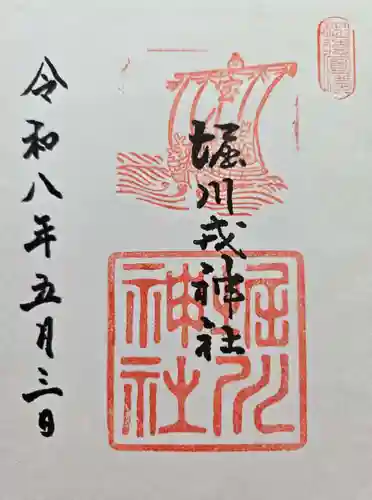 堀川戎神社
令和八年五月三日
堀川
神社